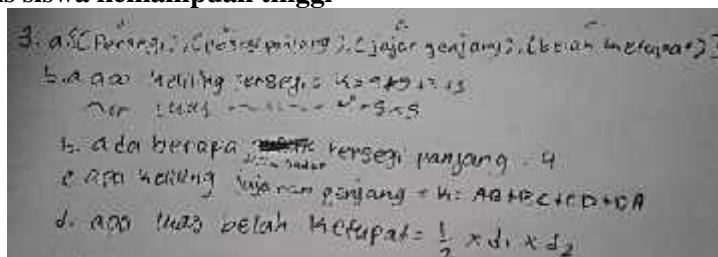 s siswa kemampuan tinggi
3. a. {(Persegi), (persegi panjang), (jajar genjang), (belah ketupat)}
b. a apa keliling persegi = K = s+s+s+s
luas = s×s
b. ada berapa sudut persegi panjang = 4
c apa keliling jajaran genjang = K = AB+BC+CD+DA
d. apa luas belah ketupat = 1/2 x d1 x d2